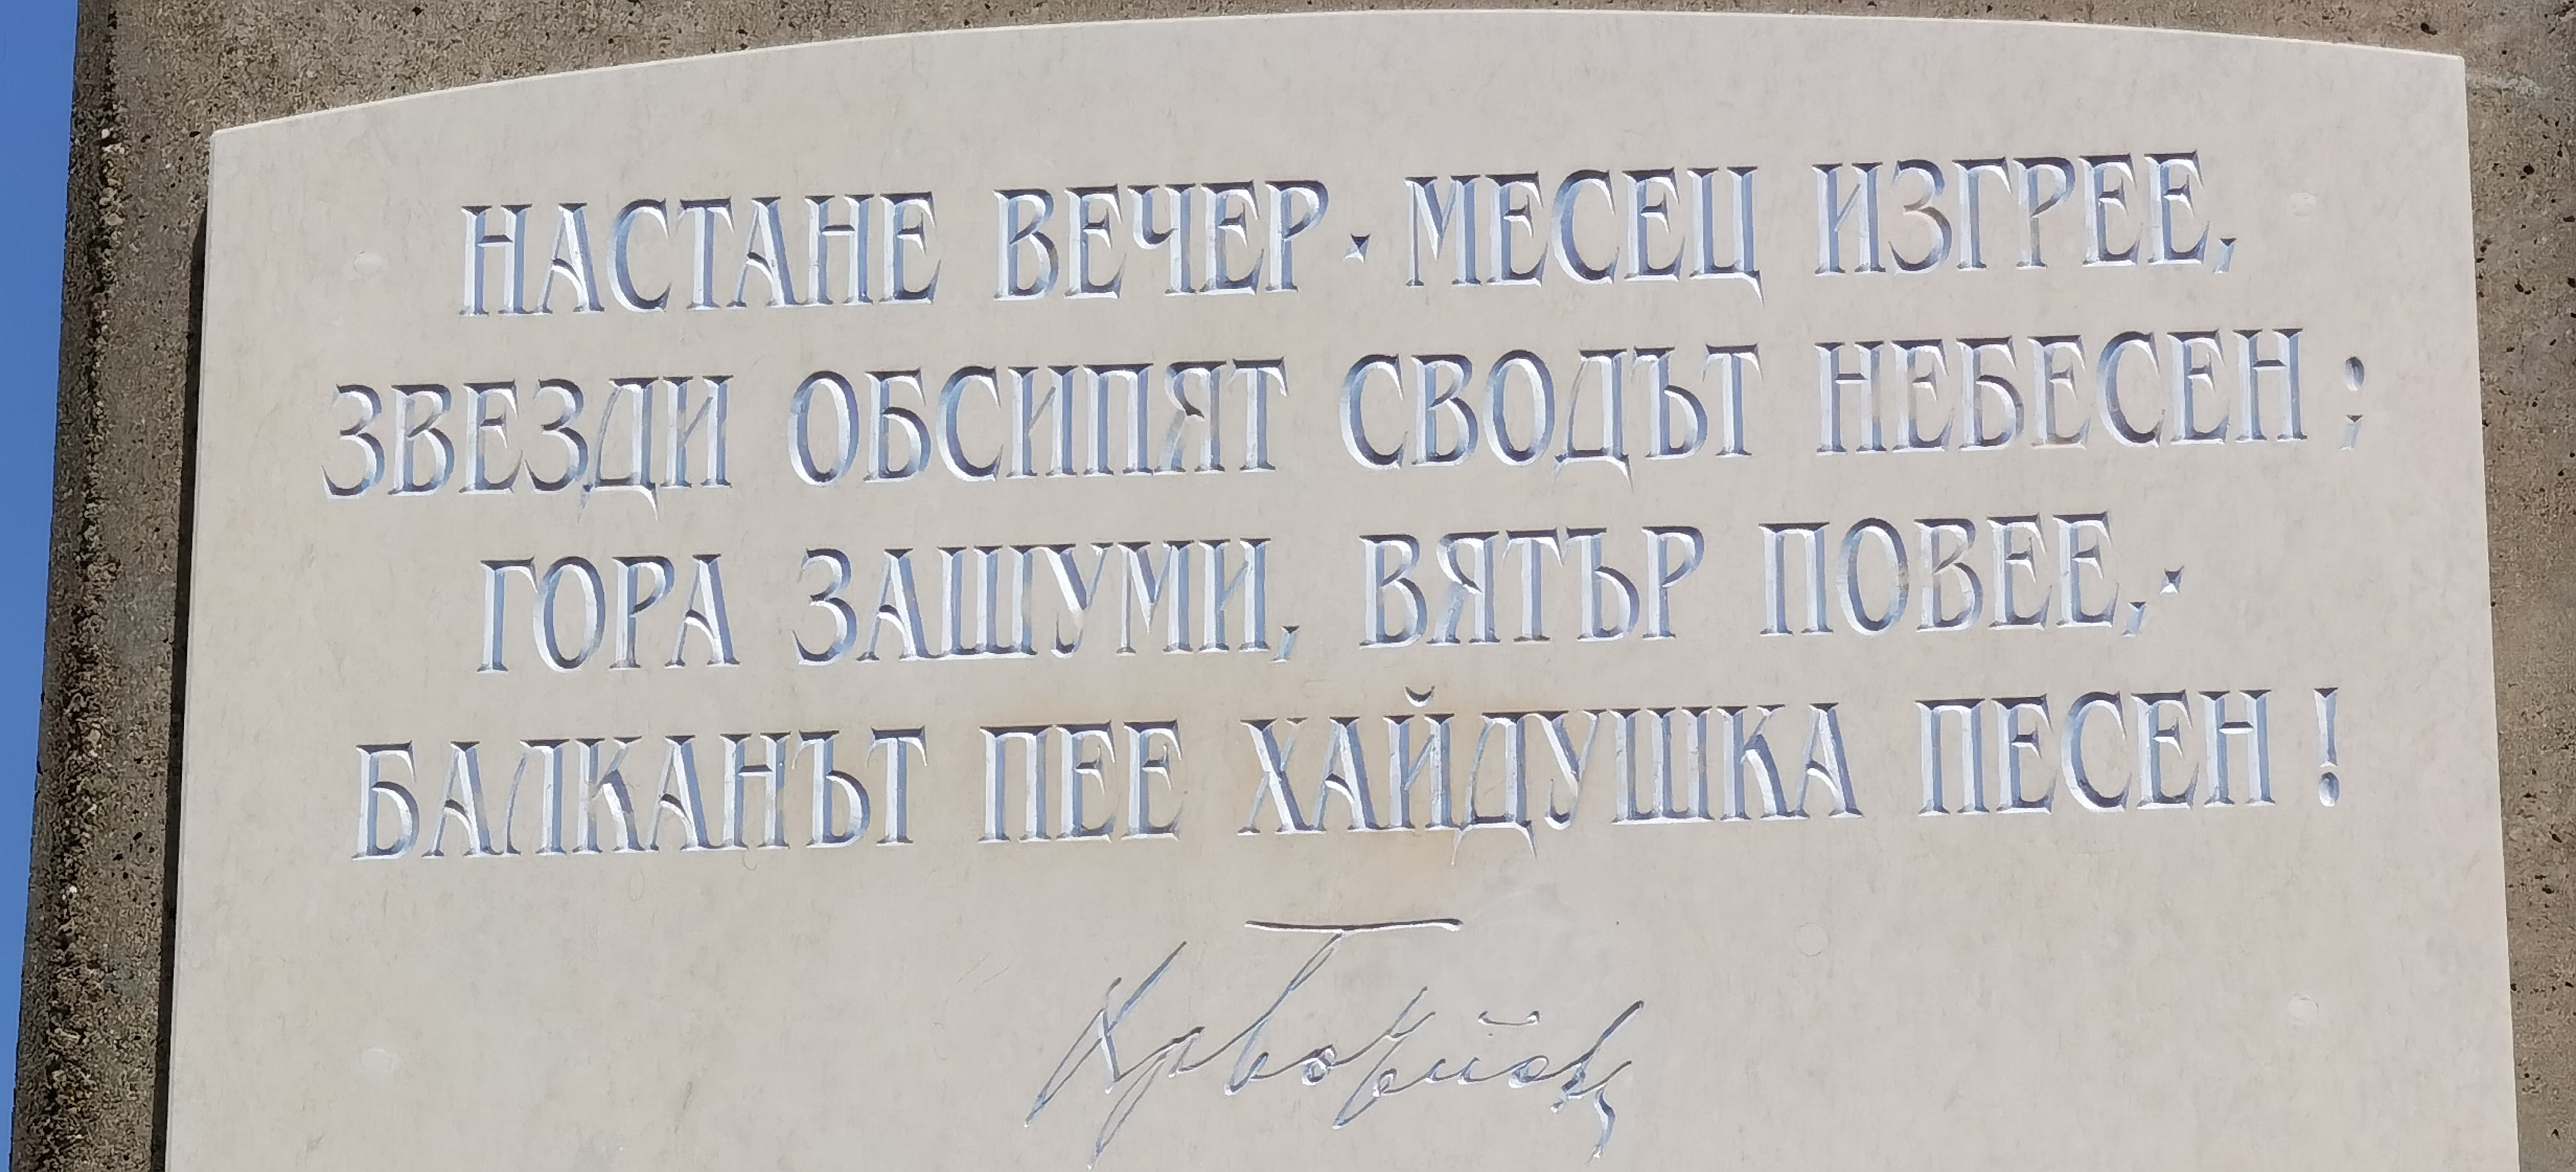 НАСТАНЕ ВЕЧЕР · МЕСЕЦ ИЗГРЕЕ,
ЗВЕЗДИ ОБСИПЯТ СВОДЪТ НЕБЕСЕН ;
ГОРА ЗАШУМИ, ВЯТЪР ПОВЕЕ,·
БАЛКАНЪТ ПЕЕ ХАЙДУШКА ПЕСЕН !